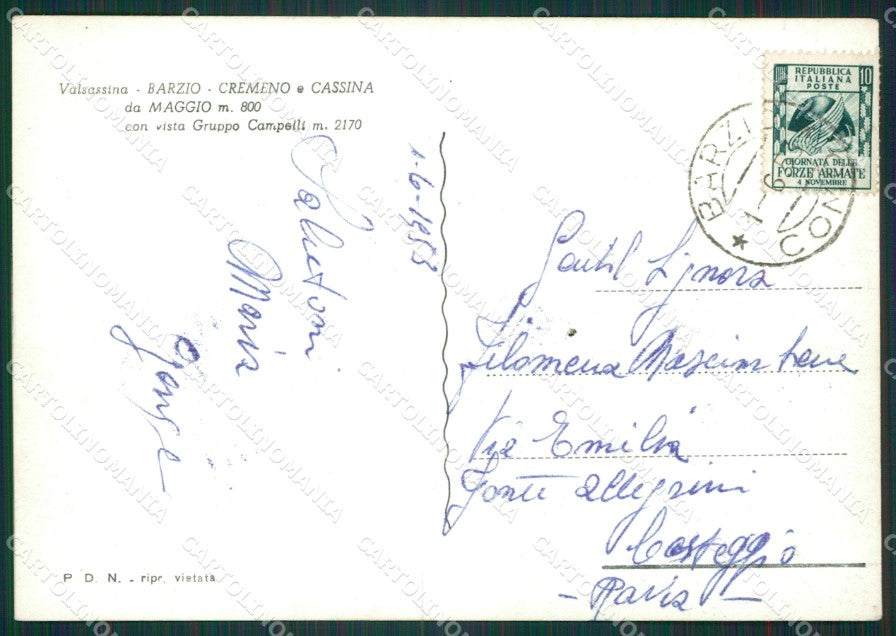 Valsassina - BARZIO - CREMENO e CASSINA
da MAGGIO m. 800
con vista Gruppo Campelli m. 2170
1-6-1953
Salutoni
Maria
REPUBBLICA
ITALIANA
POSTE
10
GIORNATA DELLE
FORZE ARMATE
4 NOVEMBRE
BARZI
COM
Gentil Signora
Filomena
Via Emilia
Fonte Allegrini
Casteggio
- Pavia -
P D N. - ripr. vietata
CARTOLINOMANIA